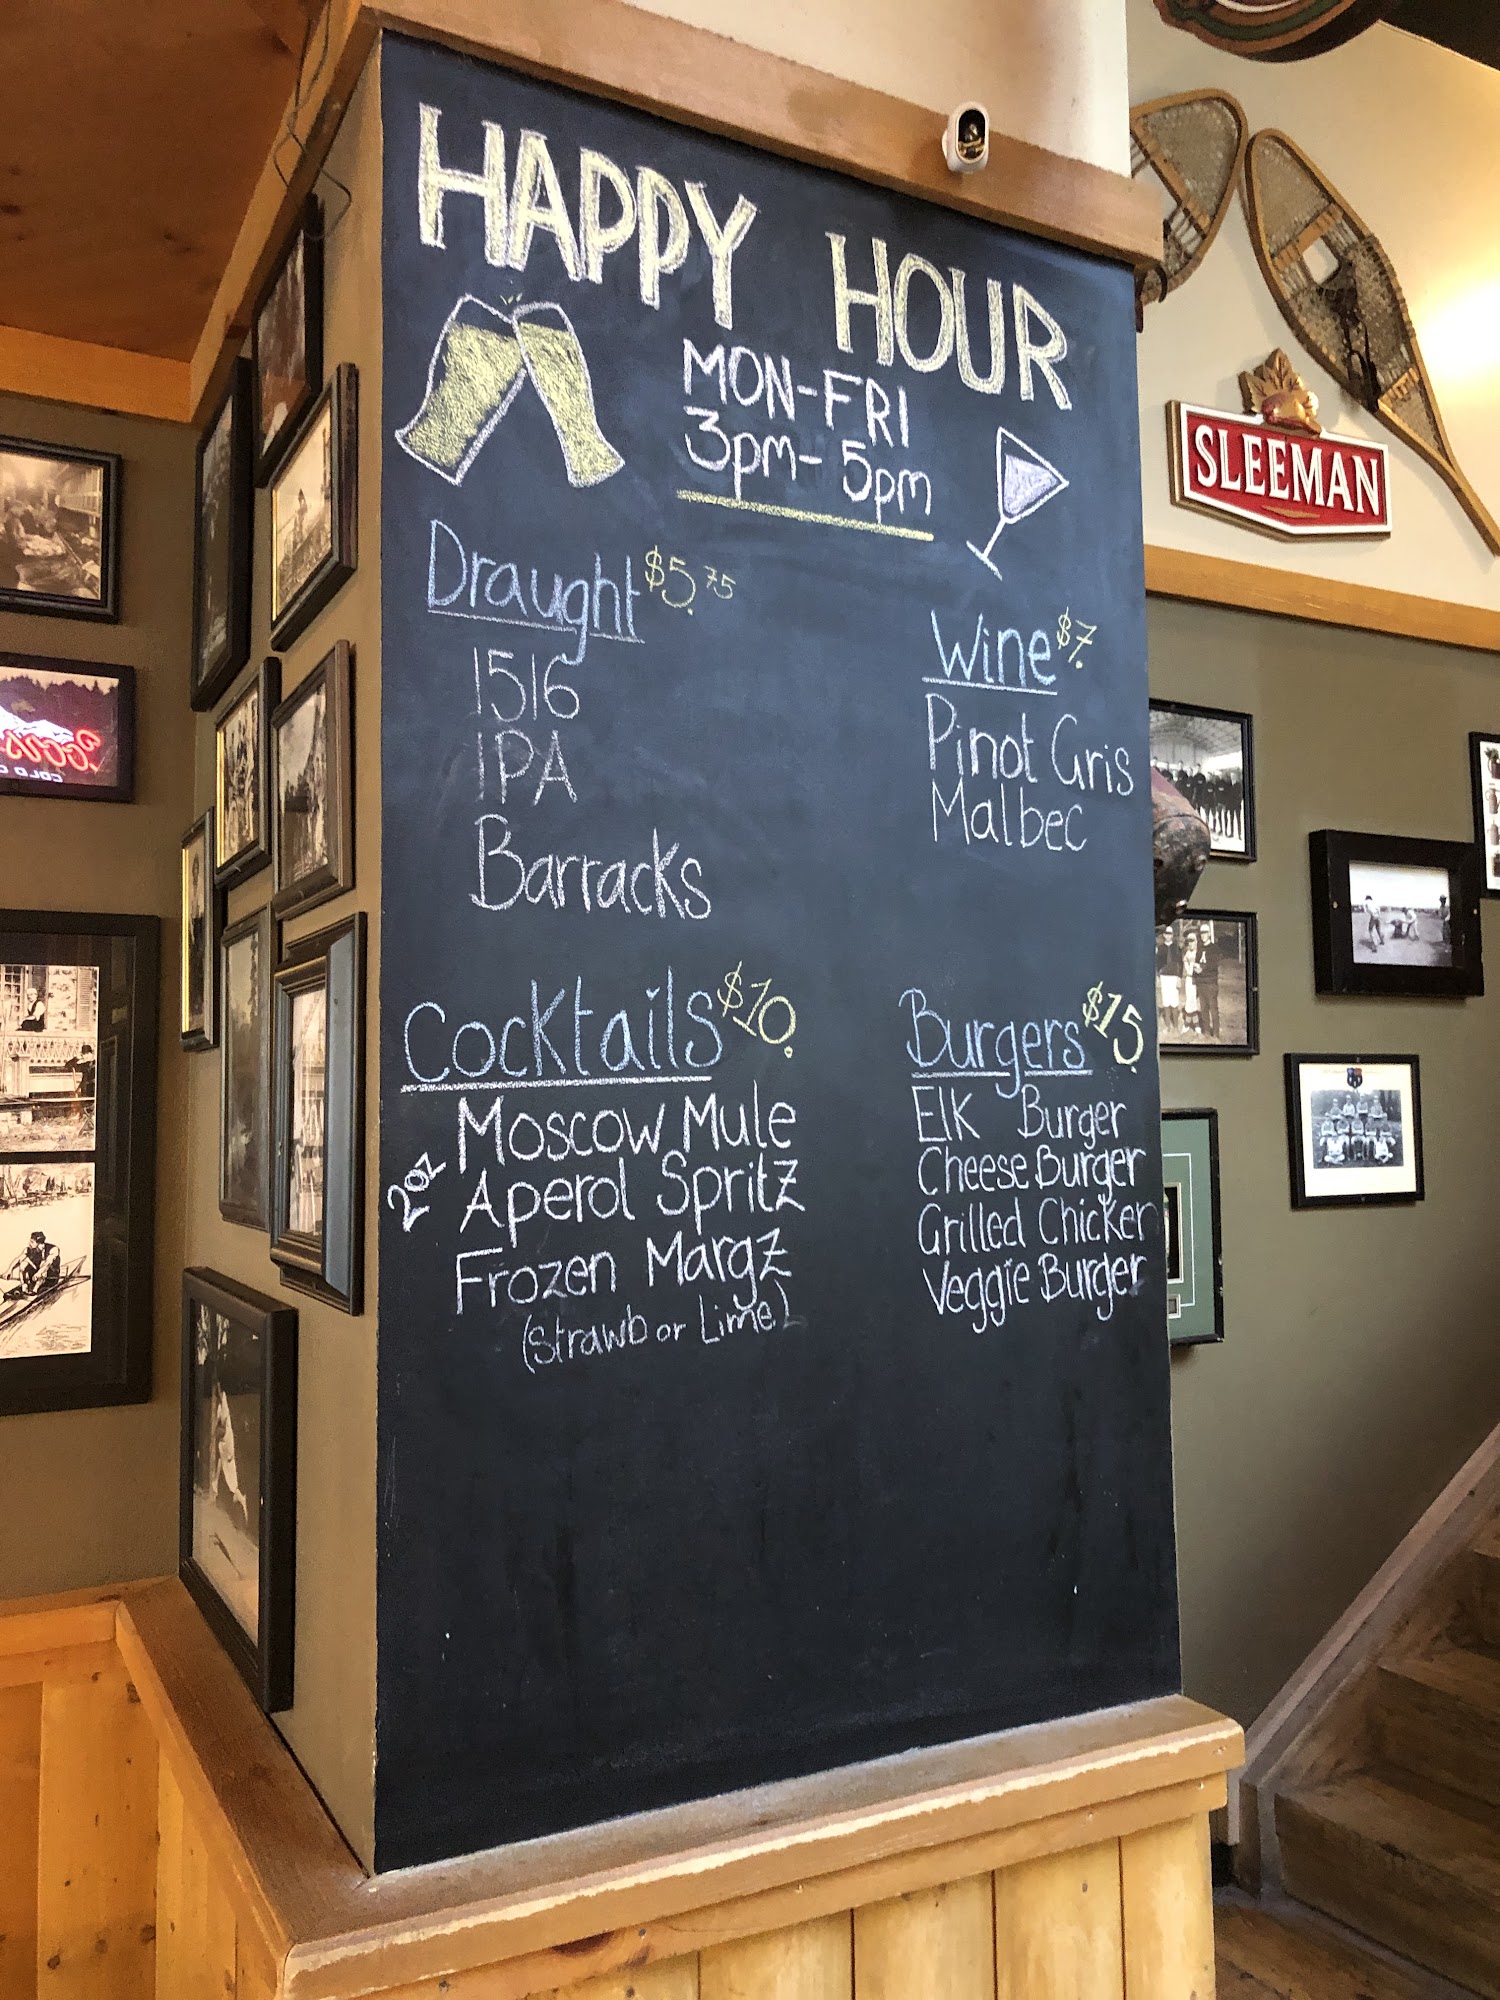 HAPPY HOUR
MON-FRI
3pm-5pm
Draught $5.75
1516
IPA
Barracks
Wine $7.
Pinot Gris
Malbec
Cocktails $10.
2oz
Moscow Mule
Aperol Spritz
Frozen Margz
(Strawb or Lime)
Burgers $15.
Elk Burger
Cheese Burger
Grilled Chicken
Veggie Burger
SLEEMAN
Coors